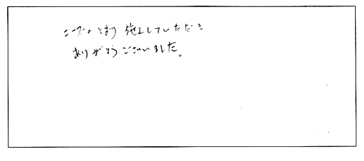 ニーズのとおり施工していただき
ありがとうございました。